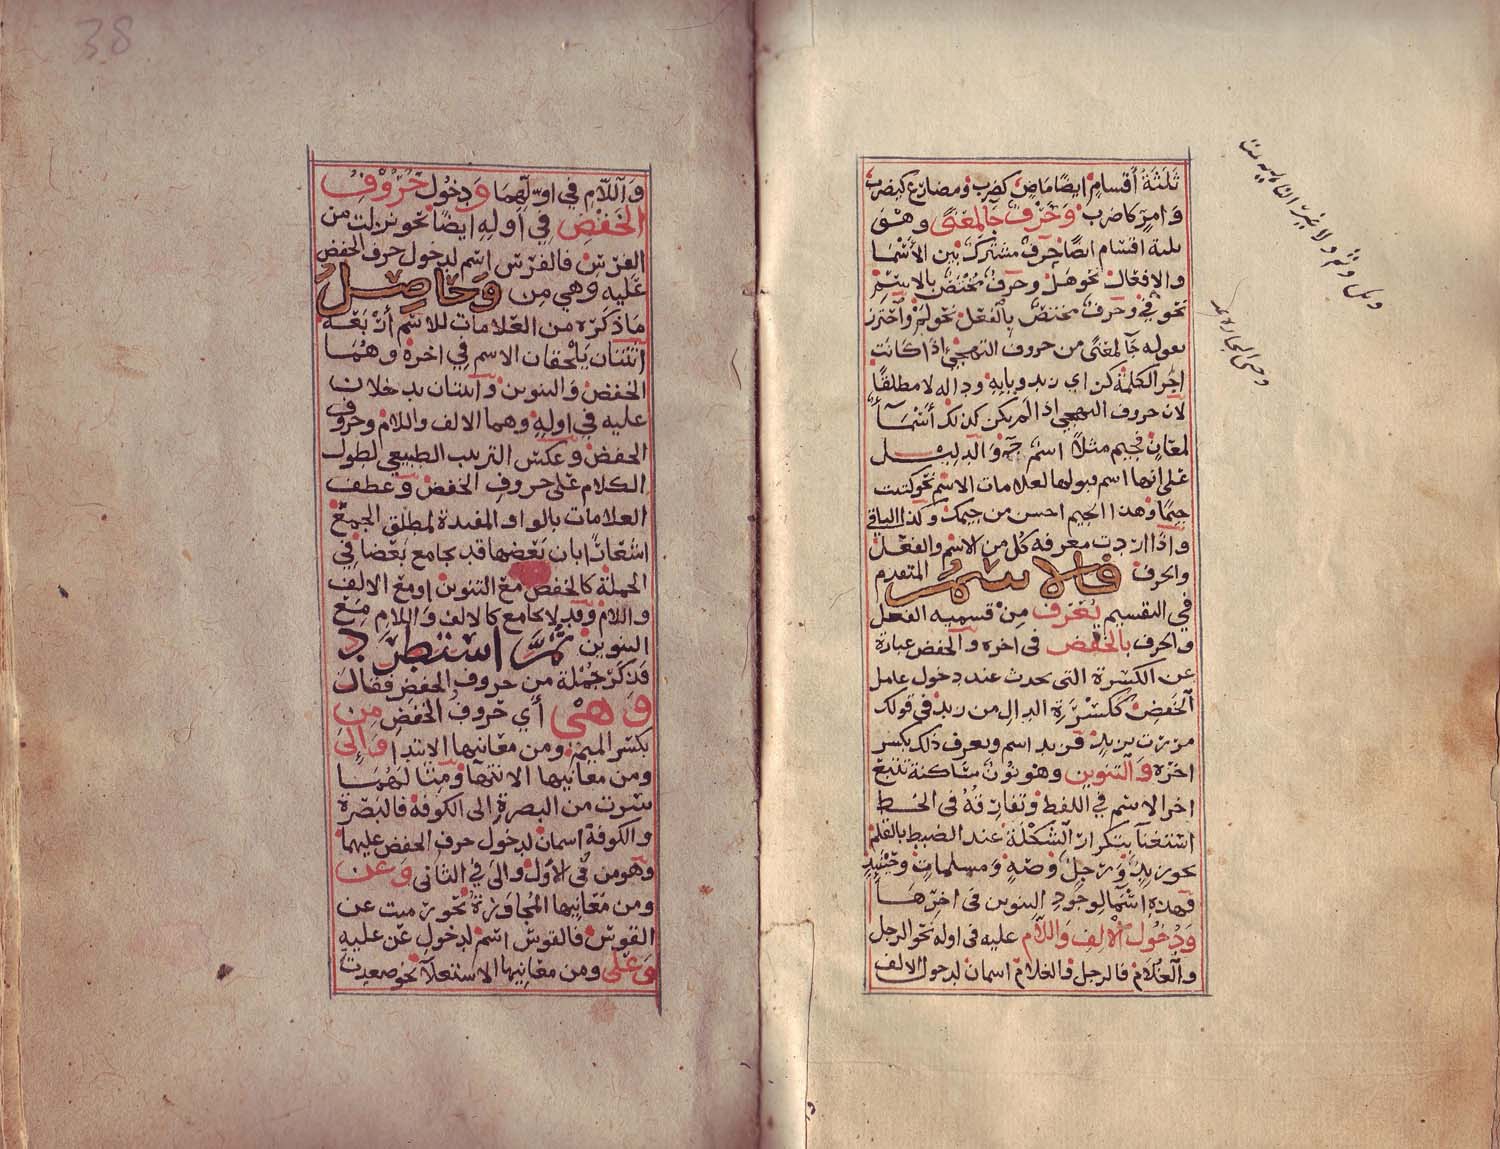 ثلثة أقسام ايضا ماض كضرب ومضارع كيضرب
وامر كاضرب وحرف جا لمعنى وهو
ثلثة اقسام ايضا حرف مشترك بين الأسما
والافعال نحو هل وحرف مختص بالاسم
نحو في وحرف مختص بالفعل نحو لم واحترز
بقوله جا لمعنى من حروف التهجي اذا كانت
اجزا لكلمة كزاي زيد ويايه وداله لا مطلقا
لان حروف التهجي اذا لم يكن كذلك أسمآ
لمعان فجيم مثلا اسم جه والدليل
على انها اسم قبولها لعلامات الاسم نحو كتبت
جيما وهذا الجيم احسن من جيمك وكذا الباقي
واذا اردت معرفة كل من الاسم والفعل
والحرف فالاسم المتقدم
في التقسيم يعرف من قسميه الفعل
والحرف بالخفض في اخره والخفض عبارة
عن الكسرة التي يحدث عند دخول عامل
الخفض ككسرة الدال من زيد في قولك
مررت بزيد فزيد اسم ويعرف ذلك بكسر
اخره والتنوين وهو نون ساكنة تتبع
اخر الاسم في اللفظ وتفارقه في الخط
استغنا بتكرار الشكلة عند الضبط بالقلم
نحو زيد ورجل وصه ومسلمات وحينيذ
فهذه اسما لوجود التنوين في اخرها
ودخول الالف واللام عليه في اوله نحو الرجل
والغلام فالرجل فالغلام اسمان لدخول الالف
واللام في اولهما ودخول حروف
الخفض في اوله ايضا نحو نزلت من
الفرس فالفرس اسم لدخول حرف الخفض
عليه وهي من وحاصل
ما ذكره من العلامات للاسم أربعة
اثنتان يلحقان الاسم في اخره وهما
الخفض والتنوين واثنتان يدخلان
عليه في اوله وهما الالف واللام وحروف
الخفض وعكس الترتيب الطبيعي لطول
الكلام على حروف الخفض وعطف
العلامات بالواو المفيدة لمطلق الجمع
اشعارا بان بعضها قد يجامع بعضا في
الجملة كالخفض مع التنوين او مع الالف
واللام وقد لا يجامع كالالف واللام مع
التنوين ثم استطرد
فذكر جملة من حروف الخفض فقال
وهي أي حروف الخفض من
بكسر الميم ومن معانيها الابتدا والى
ومن معانيها الانتها ومثالهما
سرت من البصرة الى الكوفة فالبصرة
والكوفة اسمان لدخول حرف الخفض عليهما
وهو من في الاول والى في الثاني وعن
ومن معانيها المجاوزة نحو رميت عن
القوس فالقوس اسم لدخول عن عليه
وعلى ومن معانيها الاستعلا نحو صعدت
38